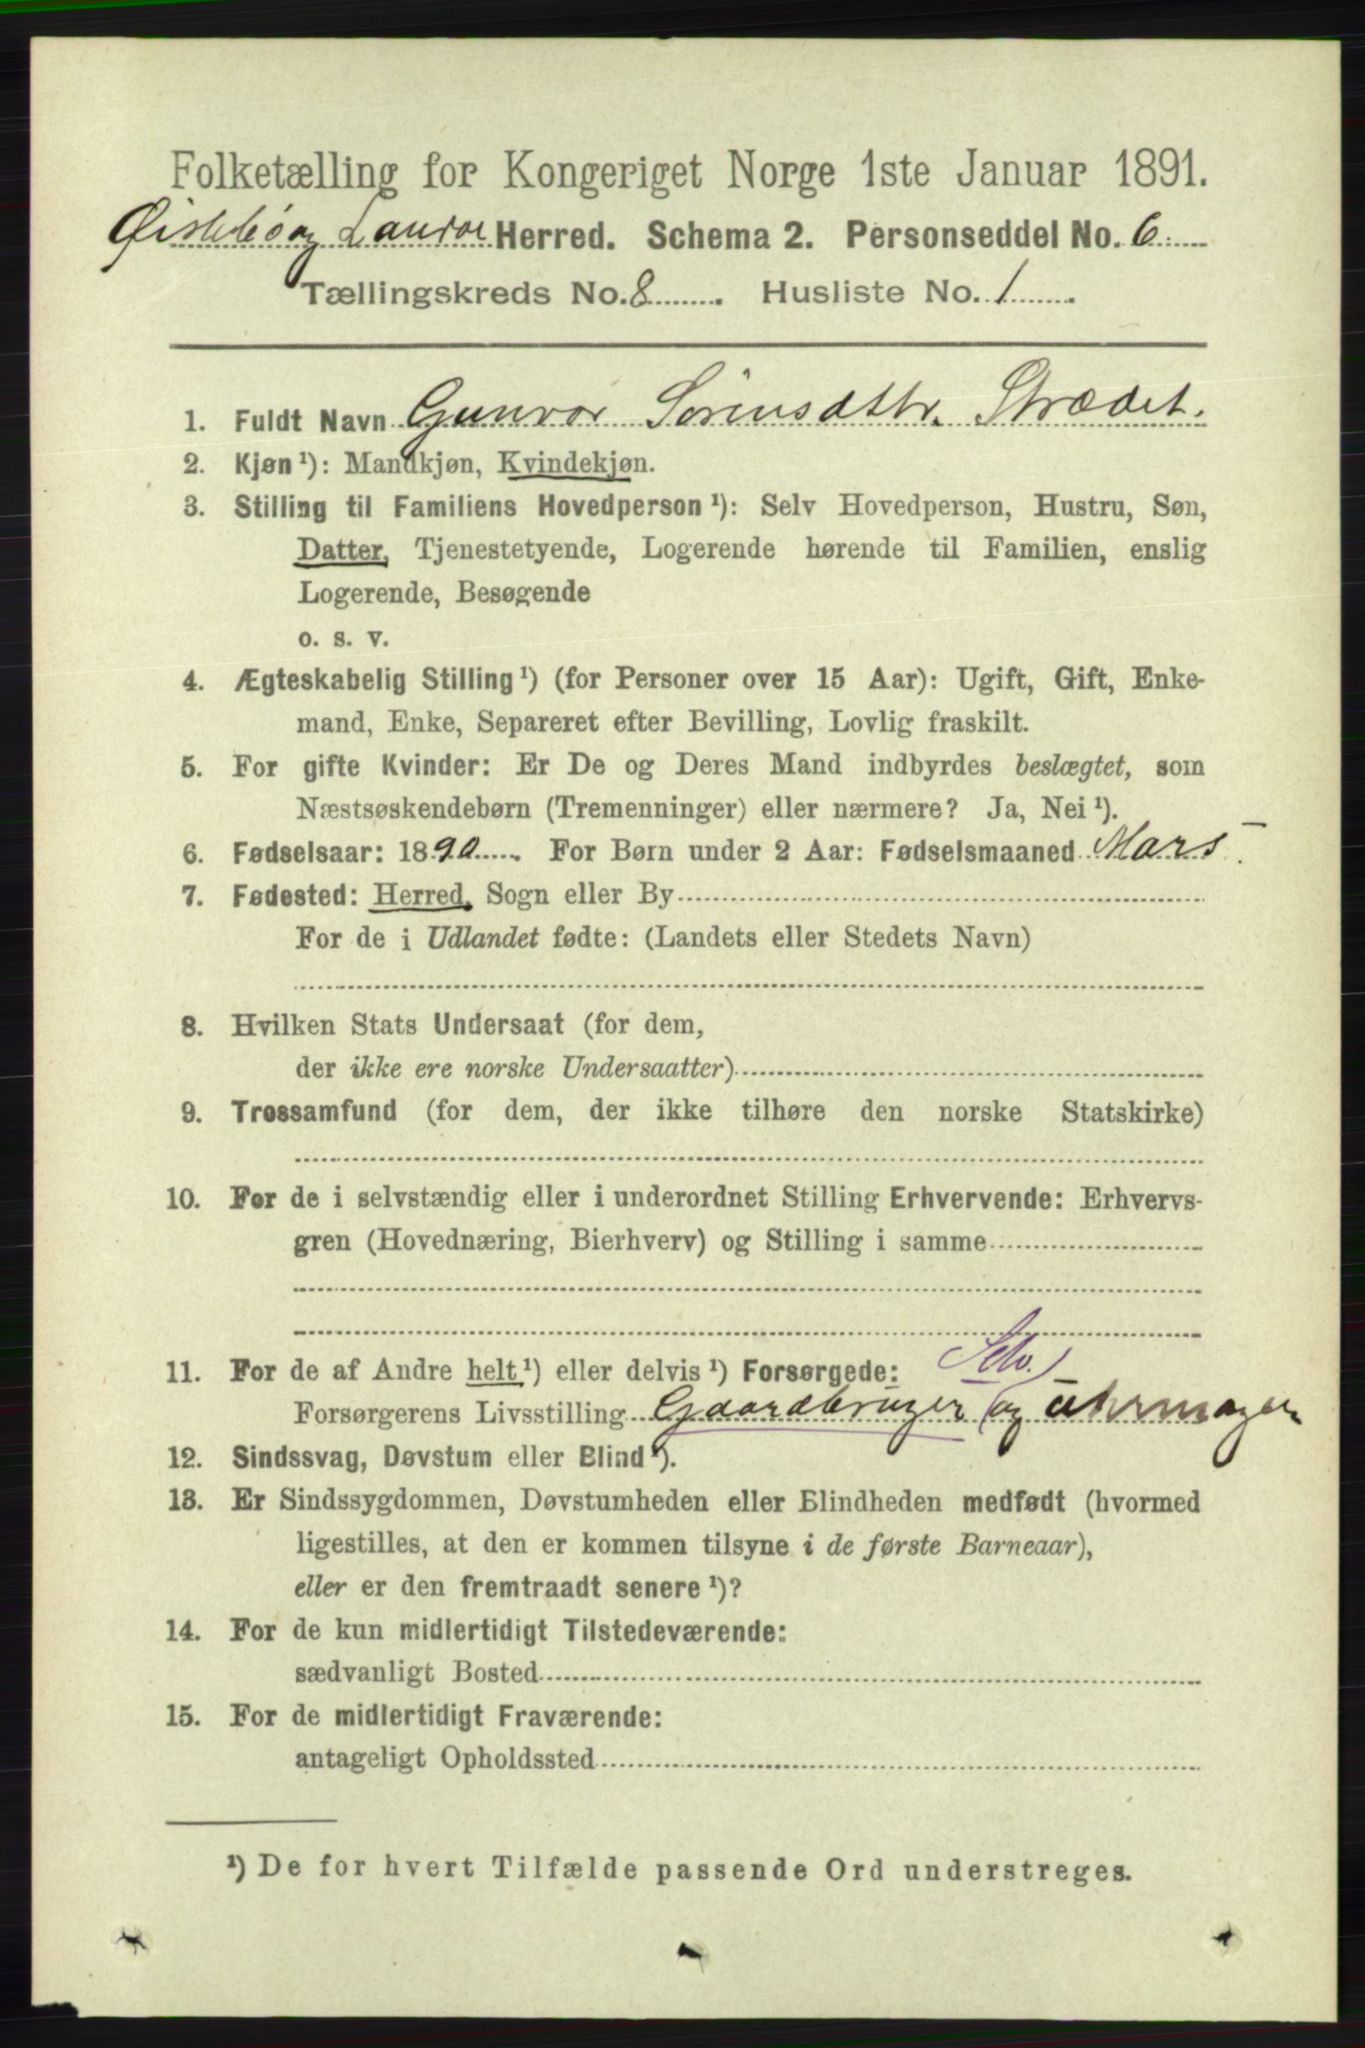 Folketælling for Kongeriget Norge 1ste Januar 1891.
Øislebø og Laudal Herred. Schema 2. Personseddel No. 6
Tællingskreds No. 8. Husliste No. 1.
1. Fuldt Navn Gunvor Sørensdttr. Strædet.
2. Kjøn¹): Mandkjøn, Kvindekjøn.
3. Stilling til Familiens Hovedperson¹): Selv Hovedperson, Hustru, Søn,
Datter, Tjenestetyende, Logerende hørende til Familien, enslig
Logerende, Besøgende
o. s. v.
4. Ægteskabelig Stilling¹) (for Personer over 15 Aar): Ugift, Gift, Enke-
mand, Enke, Separeret efter Bevilling, Lovlig fraskilt.
5. For gifte Kvinder: Er De og Deres Mand indbyrdes beslægtet, som
Næstsøskendebørn (Tremenninger) eller nærmere? Ja, Nei¹).
6. Fødselsaar: 1890. For Børn under 2 Aar: Fødselsmaaned Mars
7. Fødested: Herred, Sogn eller By
For de i Udlandet fødte: (Landets eller Stedets Navn)
8. Hvilken Stats Undersaat (for dem,
der ikke ere norske Undersaatter)
9. Trossamfund (for dem, der ikke tilhøre den norske Statskirke)
10. For de i selvstændig eller i underordnet Stilling Erhvervende: Erhvervs-
gren (Hovednæring, Bierhverv) og Stilling i samme
11. For de af Andre helt¹) eller delvis¹) Forsørgede: Selv.
Forsørgerens Livsstilling Gaardbruger (og Uhrmager
12. Sindssvag, Døvstum eller Blind¹).
13. Er Sindssygdommen, Døvstumheden eller Blindheden medfødt (hvormed
ligestilles, at den er kommen tilsyne i de første Barneaar),
eller er den fremtraadt senere¹)?
14. For de kun midlertidigt Tilstedeværende:
sædvanligt Bosted
15. For de midlertidigt Fraværende:
antageligt Opholdssted
¹) De for hvert Tilfælde passende Ord understreges.